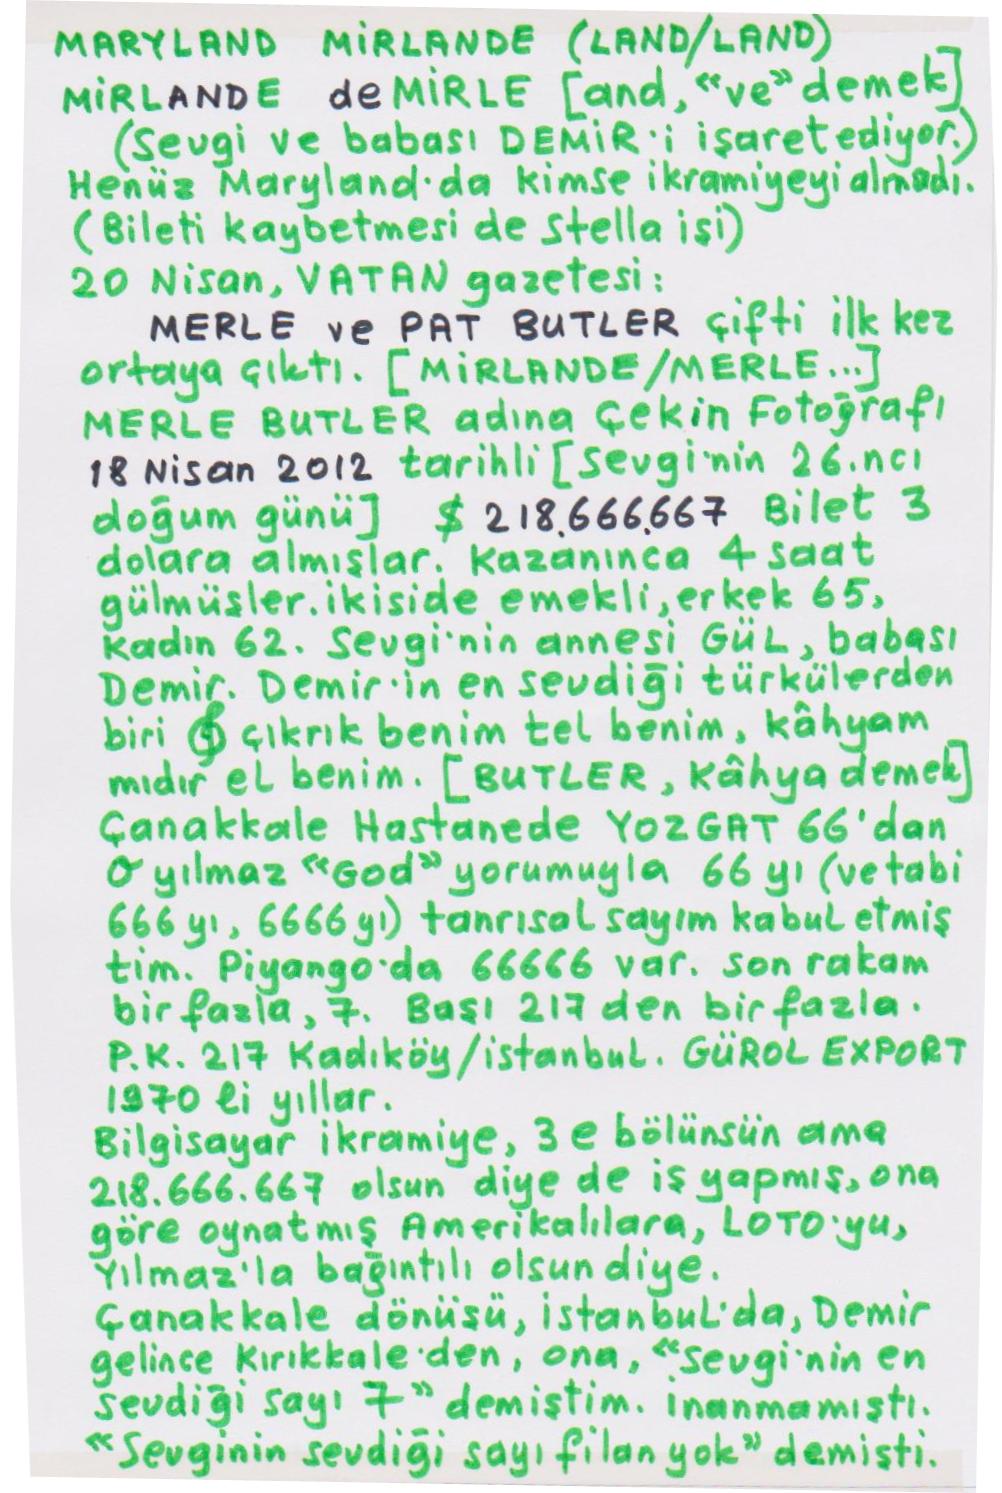 MARYLAND MİRLANDE (LAND/LAND)
MİRLANDE de MİRLE [and, “ve” demek]
(Sevgi ve babası DEMİR'i işaret ediyor.)
Henüz Maryland'da kimse ikramiyeyi almadı.
(Bileti kaybetmesi de Stella işi)
20 Nisan, VATAN gazetesi:
MERLE ve PAT BUTLER çifti ilk kez
ortaya çıktı. [MİRLANDE/MERLE...]
MERLE BUTLER adına Çekin Fotoğrafı
18 Nisan 2012 tarihli [Sevgi'nin 26.ncı
doğum günü] $ 218.666.667 Bilet 3
dolara almışlar. Kazanınca 4 saat
gülmüşler. ikiside emekli, erkek 65,
Kadın 62. Sevgi'nin annesi GÜL, babası
Demir. Demir'in en sevdiği türkülerden
biri çıkrık benim tel benim, kâhyam
mıdır el benim. [BUTLER, Kâhya demek]
Çanakkale Hastanede YOZGAT 66'dan
O yılmaz “God” yorumuyla 66 yı (ve tabi
666 yı, 6666 yı) tanrısal sayım kabul etmiş
tim. Piyango'da 66666 var. son rakam
bir fazla, 7. Başı 217 den bir fazla.
P.K. 217 Kadıköy/istanbul. GÜROL EXPORT
1970 li yıllar.
Bilgisayar ikramiye, 3 e bölünsün ama
218.666.667 olsun diye de iş yapmış, ona
göre oynatmış Amerikalılara, LOTO'yu,
Yılmaz'la bağıntılı olsun diye.
Çanakkale dönüşü, istanbul'da, Demir
gelince Kırıkkale'den, ona, “Sevgi'nin en
sevdiği sayı 7” demiştim. inanmamıştı.
“Sevginin sevdiği sayı filan yok” demişti.